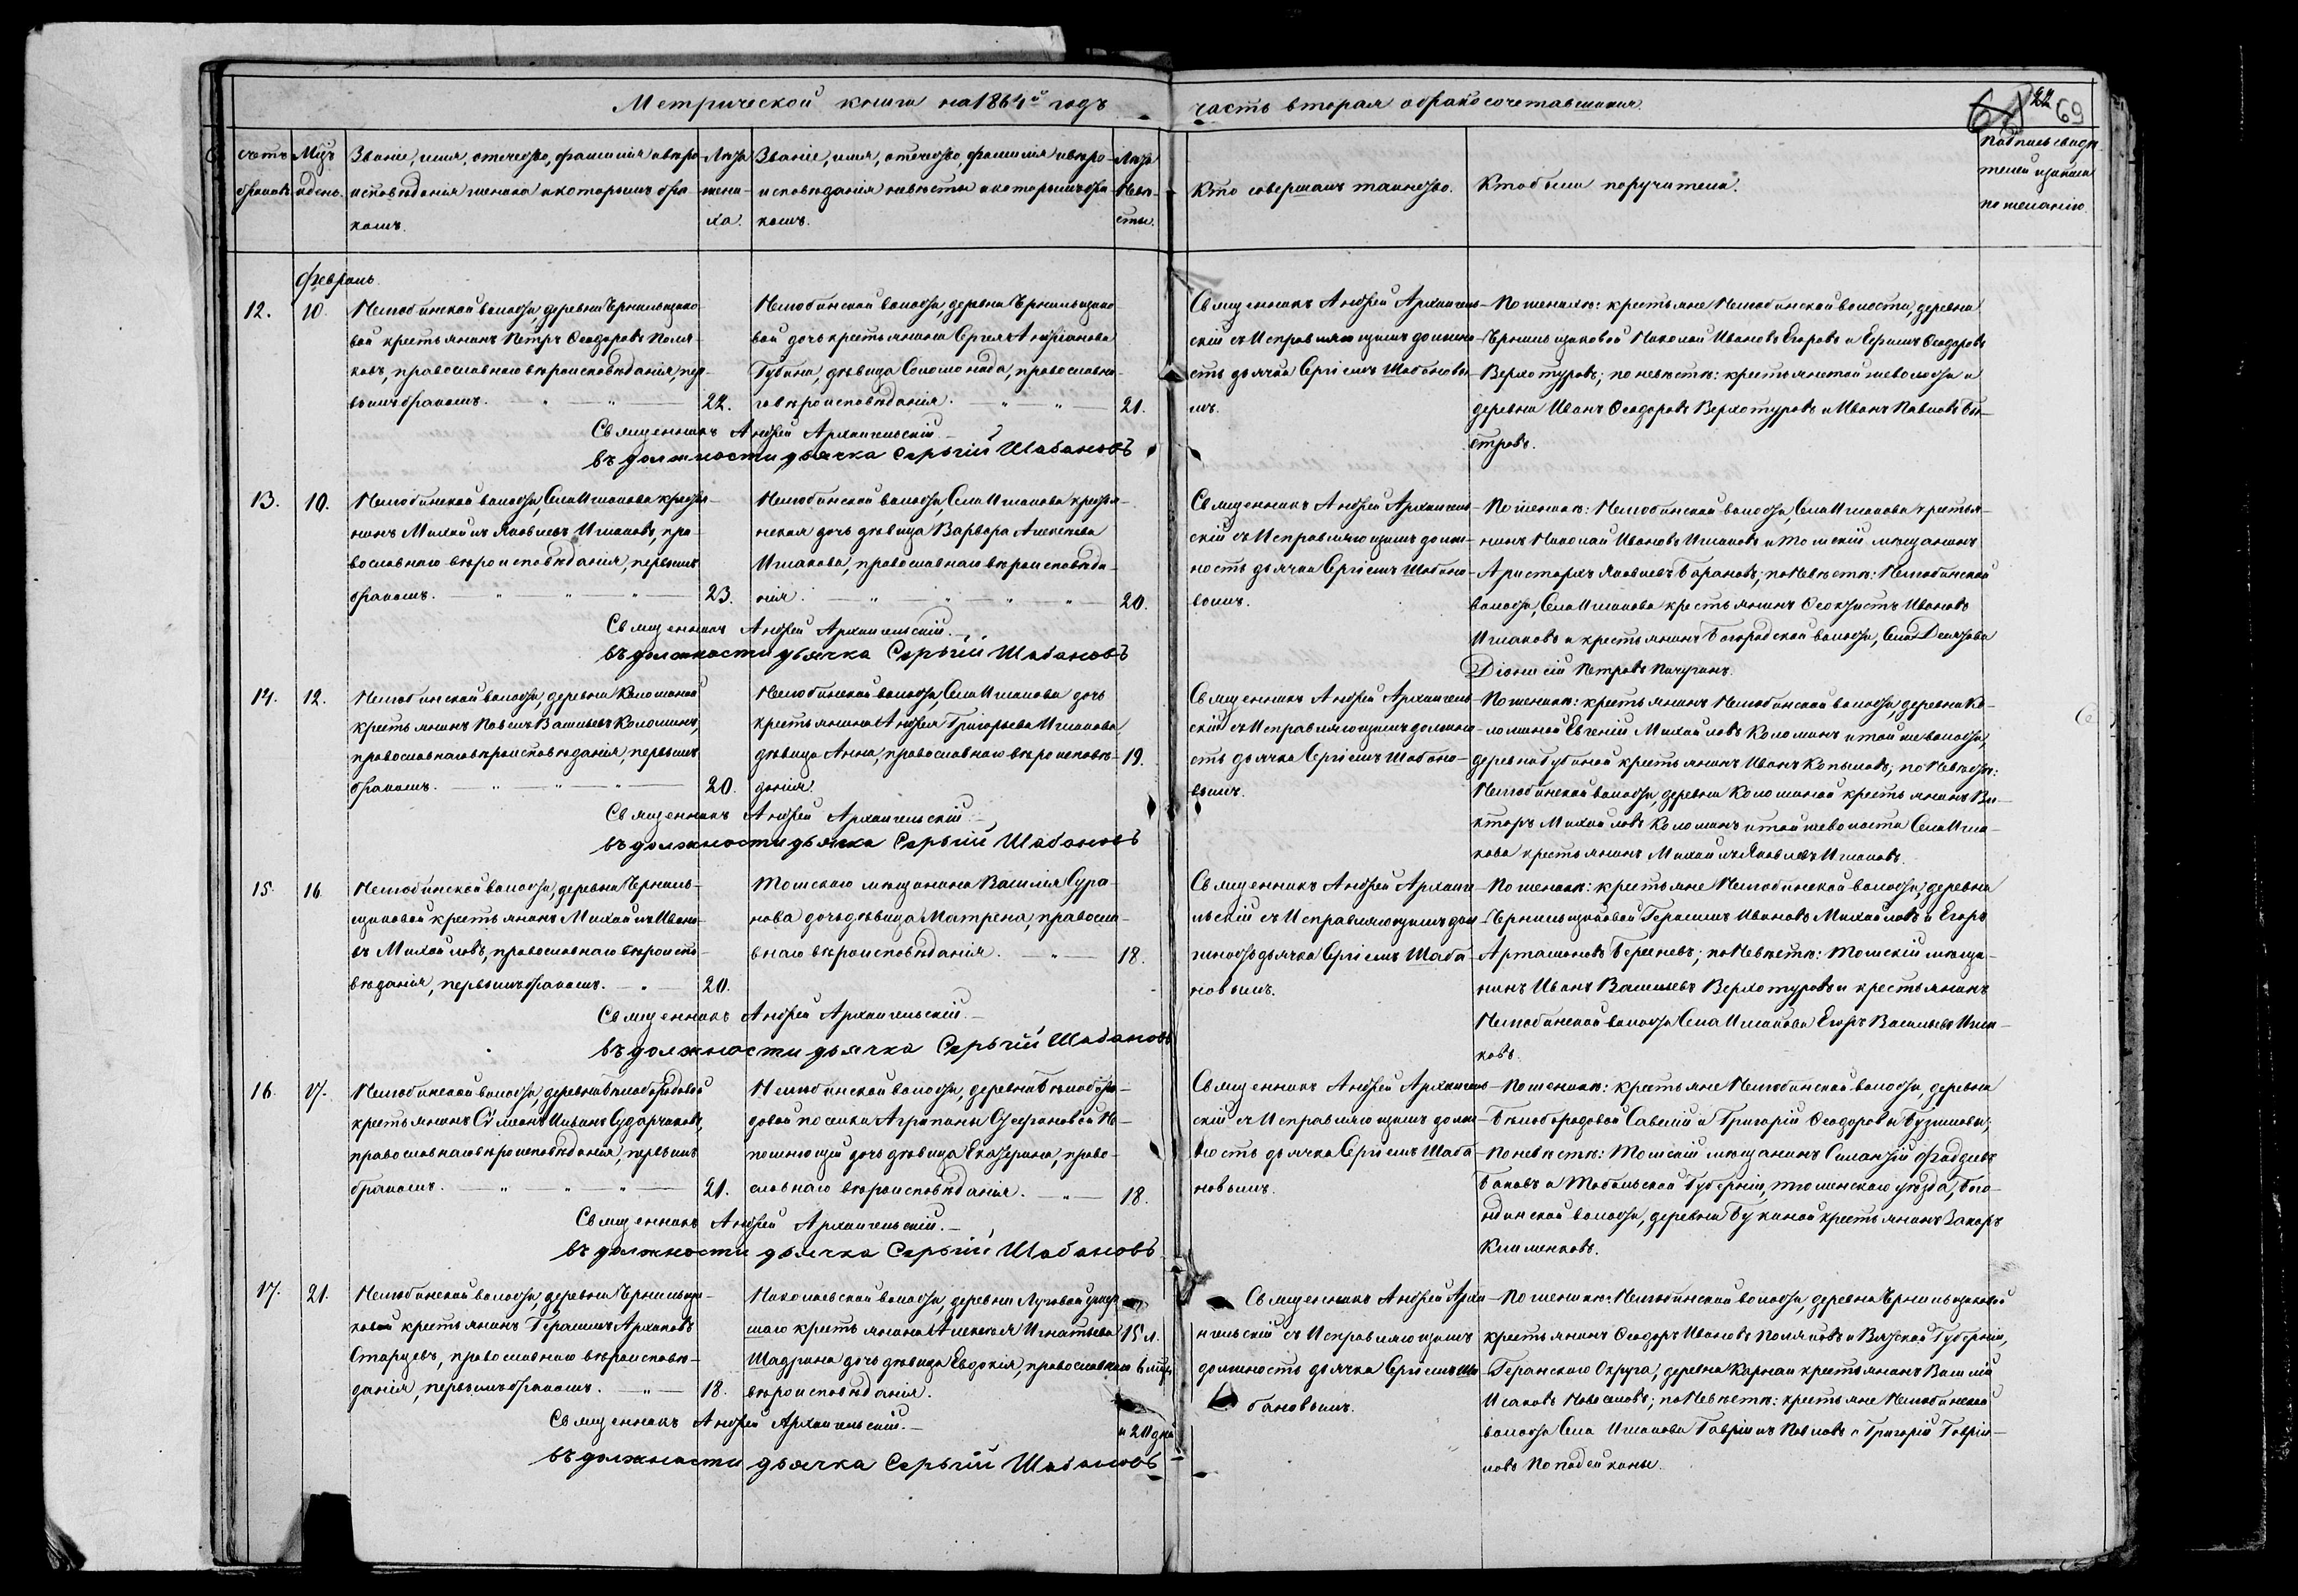 Метрической книги на 1864й годъ
часть вторая о бракосочетавшихся.
22
69
счетъ браковъ
Мцъ и день.
Званіе, имя, отечество, фамилія и вѣро-
исповѣданія жениха и которымъ бра-
комъ.
Лѣта
жени-
ха.
Званіе, имя, отечество, фамилія и вѣро-
исповѣданія невѣсты и которымъ бра-
комъ.
Лѣта
Невѣ-
сты.
Кто совершалъ таинство.
Кто были поручители.
Подпись свидѣ-
телей записи
по желанію.
Февраль.
12.
10.
Нелюбинской волости, деревни Чернильщико-
вой крестьянинъ Петръ Ѳеодоровъ Поля-
ковъ, православнаго вѣроисповѣданія, пер-
вымъ бракомъ.
22.
Нелюбинской волости, деревни Чернильщико-
вой дочь крестьянина Сергея
Губина, дѣвица Соломонида, православна-
го вѣроисповѣданія.
21.
Священникъ Андрей Архангель-
скій съ Исправляющимъ должно-
сть дьячка Сергіемъ Шабановы-
мъ.
По женихѣ: крестьяне Нелюбинской волости, деревни
Чернильщиковой Николай Ивановъ Егоровъ и Ефимъ Ѳеодоровъ
Верхотуровъ; по невѣстѣ: крестьяне той же волости и
деревни Иванъ Ѳеодоровъ Верхотуровъ и Иванъ Павловъ Бы-
стровъ.
Священникъ Андрей Архангельскій
въ должности дьячка Сергій Шабановъ
13.
10.
Нелюбинской волости, Села Ишакова крестья-
нинъ Михаилъ Яковлевъ Ишаковъ, пра-
вославнаго вѣроисповѣданія, первымъ
бракомъ.
23.
Нелюбинской волости, Села Ишакова крестья-
нская дочь дѣвица Варвара Алексеева
Ишакова, православнаго вѣроисповѣда-
нія.
20.
Священникъ Андрей Архангель-
скій съ Исправляющимъ долж-
ность дьячка Сергіемъ Шабано-
вымъ.
По женихѣ: Нелюбинской волости, Села Ишакова крестья-
нинъ Николай Ивановъ Ишаковъ и Томскій мѣщанинъ
Аристархъ Яковлевъ Барановъ; по Невѣстѣ: Нелюбинской
волости, Села Ишакова крестьянинъ Ѳеоктистъ Ивановъ
Ишаковъ и крестьянинъ Богородской волости, Села
Діонисій Петровъ Пичугинъ.
Священникъ Андрей Архангельскій.
въ должности дьячка Сергій Шабановъ
14.
12.
Нелюбинской волости, деревни Коломиной
крестьянинъ Павелъ Васильевъ Коломинъ,
православнаго вѣроисповѣданія, первымъ
бракомъ.
20.
Нелюбинской волости, Села Ишакова дочь
крестьянина Андрея Григорьева Ишакова
дѣвица Анна, православнаго вѣроисповѣ-
данія.
19.
Священникъ Андрей Архангель-
скій съ Исправляющимъ должно-
сть дьячка Сергіемъ Шабано-
вымъ.
По женихѣ: крестьянинъ Нелюбинской волости, деревни Ко-
ломиной Евгеній Михайловъ Коломинъ и той же волости,
деревни Губиной крестьянинъ Иванъ Копыловъ; по Невѣстѣ:
Нелюбинской волости, деревни Коломиной крестьянинъ Ви-
кторъ Михайловъ Коломинъ и той же волости Села Иша-
кова крестьянинъ Михаилъ Яковлевъ Ишаковъ.
Священникъ Андрей Архангельскій
въ должности дьячка Сергій Шабановъ
15.
16.
Нелюбинской волости, деревни Черниль-
щиковой крестьянинъ Михаилъ Ивано-
въ Михайловъ, православнаго вѣроиспо-
вѣданія, первымъ бракомъ.
20.
Томскаго мѣщанина Василія Сура-
нова дочь дѣвица Матрена, правосла-
внаго вѣроисповѣданія.
18.
Священникъ Андрей Арханге-
льскій съ Исправляющимъ дол-
жность дьячка Сергіемъ Шаба-
новымъ.
По женихѣ: крестьяне Нелюбинской волости, деревни
Чернильщиковой Герасимъ Ивановъ Михайловъ и Егоръ
Артамоновъ; по Невѣстѣ: Томскій мѣща-
нинъ Иванъ Васильевъ Верхотуровъ и крестьянинъ
Нелюбинской волости Села Ишакова Егоръ Васильевъ Иша-
ковъ.
Священникъ Андрей Архангельскій.
въ должности дьячка Сергій Шабановъ
16.
17.
Нелюбинской волости, деревни Бѣлобородовой
крестьянинъ Сѵмеонъ Ильинъ Сударчиковъ,
православнаго вѣроисповѣданія, первымъ
бракомъ.
21.
Нелюбинской волости, деревни Бѣлоборо-
довой поселки Агрипины Стефановой Не-
помнющей дочь дѣвица Екатерина, право-
славнаго вѣроисповѣданія.
18.
Священникъ Андрей Архангель-
скій съ Исправляющимъ долж-
ность дьячка Сергіемъ Шаба-
новымъ.
По женихѣ: крестьяне Нелюбинской волости, деревни
Бѣлобородовой Савелій и Григорій Ѳеодоровы;
по невѣстѣ: Томскій мѣщанинъ Фаддеевъ
и Тобольской Губерніи, Тюменскаго уѣзда, Бого-
ндинской волости, деревни Букиной крестьянинъ Захаръ
Клименковъ.
Священникъ Андрей Архангельскій.
въ должности дьячка Сергій Шабановъ
17.
21.
Нелюбинской волости, деревни Чернильщи-
ковой крестьянинъ Герасимъ Архиповъ
Старцевъ, православнаго вѣроисповѣ-
данія, первымъ бракомъ.
18.
Николаевской волости, деревни Луговой умер-
шаго крестьянина Алексея Игнатьева
Шадрина дочь дѣвица Евдокія, православнаго
вѣроисповѣданія.
15 л.
6 мцъ
и 20 дне
Священникъ Андрей Арха-
нгельскій съ Исправляющимъ
должность дьячка Сергіемъ Ша-
бановымъ.
По женихѣ: Нелюбинской волости, деревни Чернильщиковой
крестьянинъ Ѳеодоръ Ивановъ Поляковъ и Вятской Губерніи,
Округа, деревни крестьянинъ Василій
Исаковъ; по Невѣстѣ: крестьяне Нелюбинской
волости Села Ишакова Гавріилъ Павловъ и Григорій Гавріи-
ловъ Попадейкины.
Священникъ Андрей Архангельскій.
въ должности дьячка Сергій Шабановъ